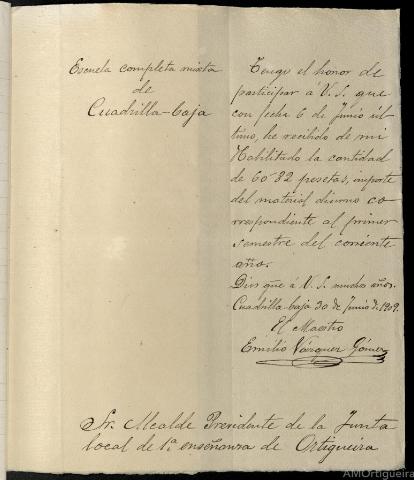 Escuela completa mixta
de
Cuadrilla-baja
Tengo el honor de
participar á V. S. que
con fecha 6 de Junio úl
timo, he recibido de mi
Habilitado la cantidad
de 60'82 pesetas, importe
del material diurno co
rrespondiente al primer
semestre del corriente
año.
Dios gue á V. S. muchos años.
Cuadrilla-baja 30 de Junio de 1909.
El Maestro
Emilio Vázquez Gómez
Sr. Alcalde Presidente de la Junta
local de 1ª enseñanza de Ortigueira
AMOrtigueira